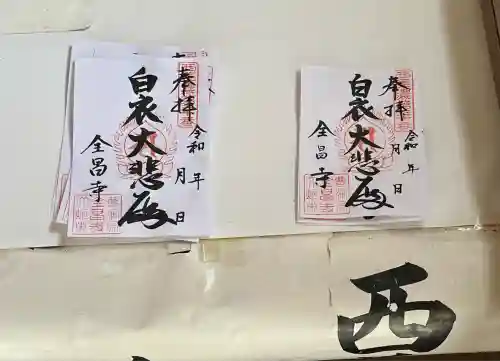 奉拝
白衣大悲殿
令和 年 月 日
全昌寺
奉拝
白衣大悲殿
令和 年 月 日
全昌寺
西